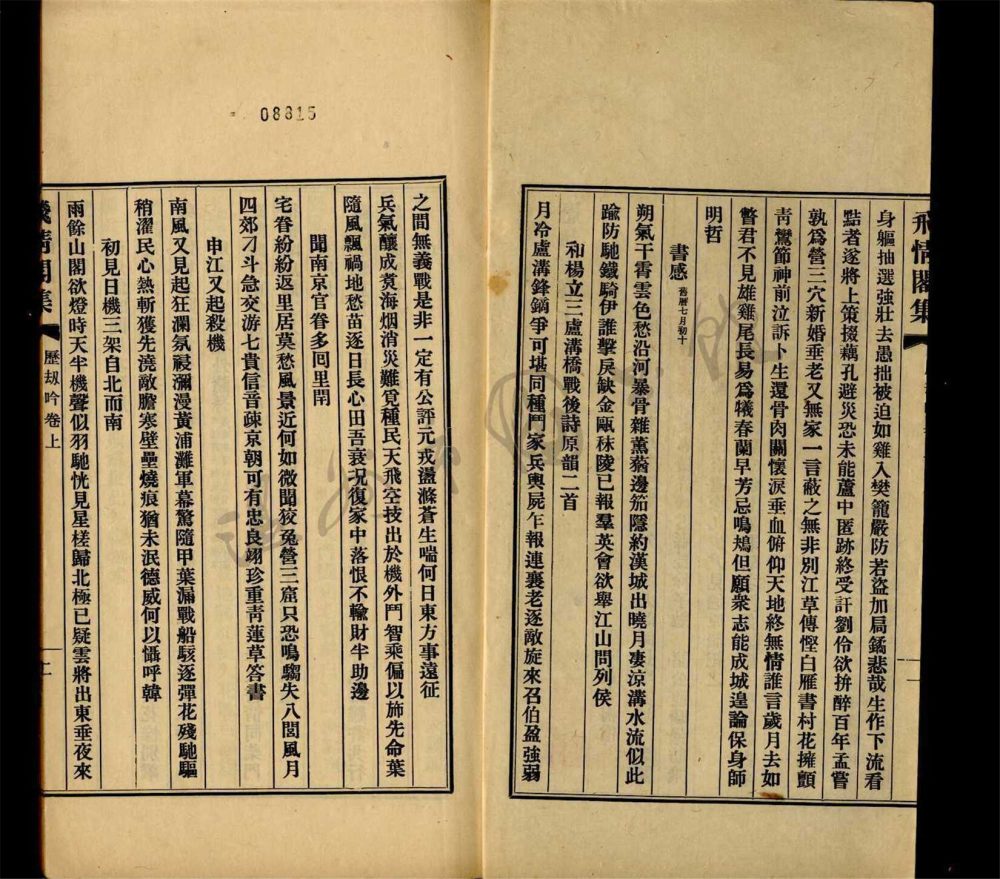 飛情閣集
身軀抽選強壯去愚拙被迫如雞入樊籠嚴防若盜加局鐍悲哉生作下流看
黠者遂將上策掇藕孔避災恐未能蘆中匿跡終受訐劉伶欲拚醉百年孟嘗
孰爲營三穴新婚垂老又無家一言蔽之無非別江草傳慳白雁書村花擁顫
靑鸞節神前泣訴卜生還骨肉關懷淚垂血俯仰天地終無情誰言歲月去如
瞥君不見雄雞尾長易爲犧春蘭早芳忌鳴鴂但願衆志能成城遑論保身師
明哲
書感 舊曆七月初十
朔氣干霄雲色愁沿河暴骨雜薰蕕邊笳隱約漢城出曉月凄涼溝水流似此
踰防馳鐵騎伊誰擊戾缺金甌秣陵已報羣英會欲舉江山問列侯
和楊立三盧溝橋戰後詩原韻二首
月冷盧溝鋒鏑爭可堪同種鬥家兵輿屍乍報連襄老逐敵旋來召伯盈強弱
08815
之間無義戰是非一定有公評元戎盪滌蒼生喘何日東方事遠征
兵氣釀成蒉海烟消災難覓種民天飛空技出於機外鬥智乘偏以斾先命葉
隨風飄禍地愁苗逐日長心田吾衰況復家中落恨不輸財半助邊
聞南京官眷多囘里閈
宅眷紛紛返里居莫愁風景近何如微聞狡兔營三窟只恐鳴騶失八閭風月
四郊刁斗急交游七貴信音疎京朝可有忠良翊珍重靑蓮草答書
申江又起殺機
南風又見起狂瀾氛祲瀰漫黃浦灘軍幕驚隨甲葉漏戰船駭逐彈花殘馳驅
稍濯民心熱斬獲先澆敵膽寒壁壘燒痕猶未泯德威何以懾呼韓
初見日機三架自北而南
雨餘山閣欲燈時天半機聲似羽馳恍見星槎歸北極已疑雲將出東垂夜來
情閣集
歷刼吟 卷上